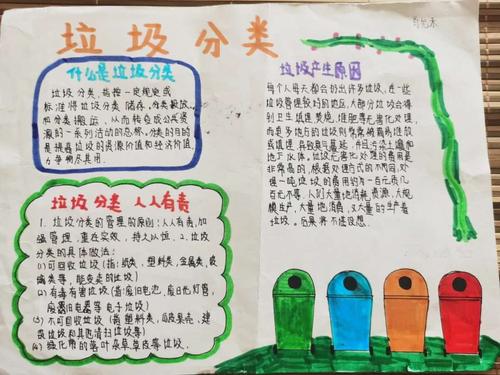 垃圾分类
什么是垃圾分类
垃圾分类,指按一定规定或
标准将垃圾分类储存、分类投放
和分类搬运,从而转变成公共资
源的一系列活动的总称,分类的目的
是提高垃圾的资源价值和经济价值,
力争物尽其用。
垃圾分类 人人有责
1、垃圾分类的管理的原则:人人有责,加
强管理,重在实效,持之以恒。2、垃圾
分类的具体做法:
(1)可回收垃圾(指:纸类、塑料类、金属类、玻
璃类等,能变卖的垃圾)
(2)有毒有害垃圾(指:废旧电池、废旧光灯管,
废旧电器等电子垃圾)
(3)不可回收垃圾(指塑料类、瓜皮果壳、建
筑垃圾和其他清扫垃圾等)
(4)绿化带的落叶杂草草皮等垃圾。
垃圾产生原因
每个人每天都会扔出许多垃圾,在一些
垃圾管理较好的地区,大部分垃圾会得
到卫生填埋、焚烧、堆肥等无害化处理,
而更多地方的垃圾则常常被简易堆放
或填埋,导致臭气蔓延,并且污染土壤和
地下水体。垃圾无害化处理的费用是
非常高的,根据处理方式的不同,处
理一吨垃圾的费用约为一百元至几
百元不等,人们大量地消耗资源,大规
模生产,大量地消费,又大量的生产着
垃圾。后果将不堪设想。